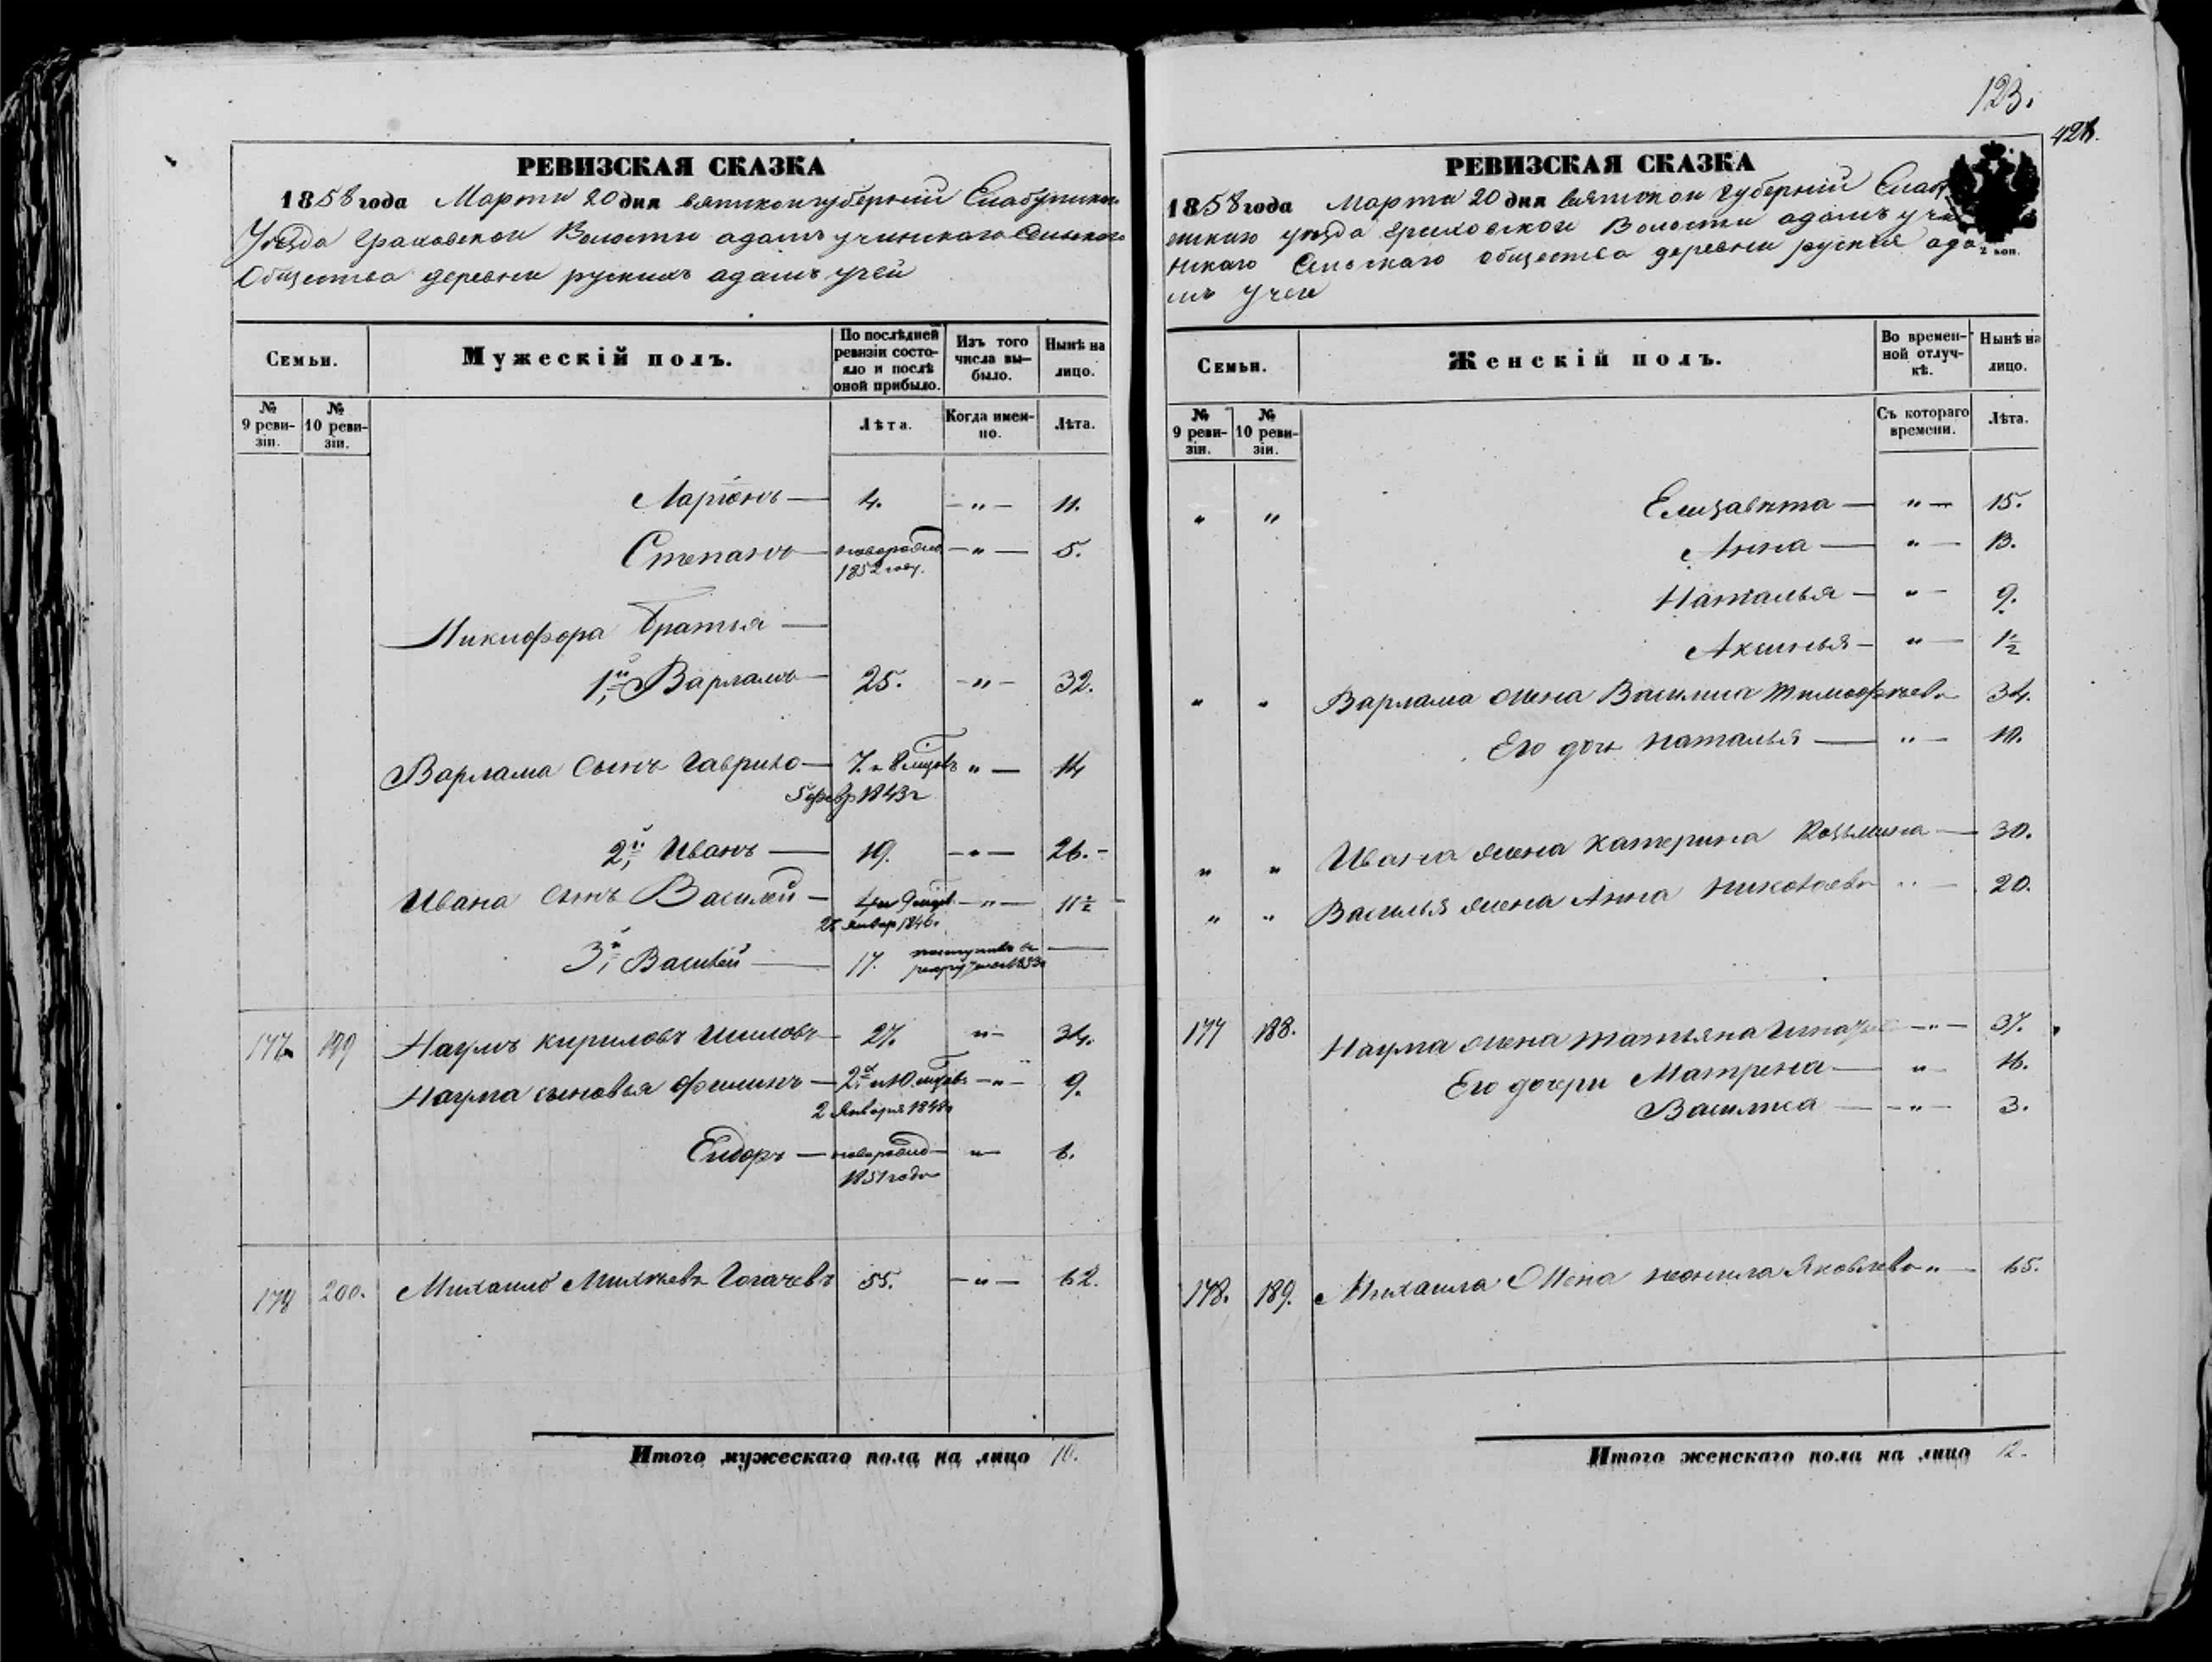 123.
428.
РЕВИЗСКАЯ СКАЗКА
1858 года Марта 20 дня вятской губерніи Елабужскаго
Уезда Граховской Волости адамъ учинскаго Сельского
Общества деревни рускихъ адамъ учей
Семьи.
Мужескій полъ.
По послѣдней ревизіи состояло и послѣ оной прибыло.
Изъ того числа выбыло.
Нынѣ на лицо.
№ 9 ревизіи.
№ 10 ревизіи.
Лѣта.
Когда именно.
Лѣта.
Ларіонъ — 4. — „ — 11.
Степанъ — новорожд — „ — 5.
1852 году.
Никифора братья —
1й Варламъ — 25. — „ — 32.
Варлама сынъ Гаврило — 7. и 8 мцовъ „ — 14
5 февр 1843 г
2й Иванъ — 19. — „ — 26. –
Ивана сынъ Василей — 4 и 9 мцов — „ — 11½
25 январ 1846.
3й Василей — 17.
177 199 Наумъ кириловъ Шиловъ — 27. „ — 34.
Наума сыновья Филипъ — 2 и 10 мцовъ — „ — 9.
2 Января 1848
Сидоръ — новорожд — „ — 6.
1851 года
178 200. Михаило Михѣевъ Гогачевъ 55. — „ — 62.
Итого мужескаго пола на лицо 10.
РЕВИЗСКАЯ СКАЗКА
1858 года Марта 20 дня вятской губерніи Елабу
жскаго уезда Граховской Волости адамъ учи
нскаго Сельскаго общества деревни рускія ада
мъ учеи
2 коп.
Семьи.
Женскій полъ.
Во временной отлучкѣ.
Нынѣ на лицо.
№ 9 ревизіи.
№ 10 ревизіи.
Съ котораго времени.
Лѣта.
„ „ Елизавѣта — „ — 15.
Анна — „ — 13.
Наталья — „ — 9.
Аксинья — „ — 1½
„ „ Варлама жена Василиса тимофѣева 34.
Его дочь наталья — „ — 10.
„ „ Ивана жена катерина Козьмина — 30.
„ „ Василья жена Анна николаева „ — 20.
177 188. Наума жена татьяна — „ — 37.
Его дочери Матрена — „ — 16.
Василиса — „ — 3.
178. 189. Михаила жена неонила Яковлева „ — 65.
Итого женскаго пола на лицо 12.